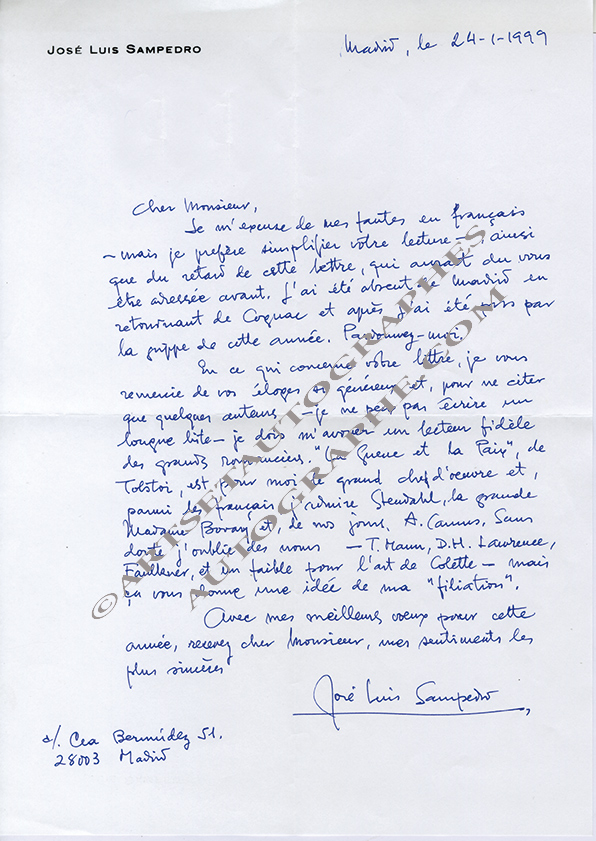 JOSÉ LUIS SAMPEDRO
Madrid, le 24-1-1999
Cher Monsieur,
Je m'excuse de mes fautes en français
— mais je préfère simplifier votre lecture — ainsi
que du retard de cette lettre, qui aurait du vous
être adressée avant. J'ai été absent de Madrid en
retournant de Cognac et après j'ai été pris par
la grippe de cette année. Pardonnez-moi.
En ce qui concerne votre lettre, je vous
remercie de vos éloges si généreux et, pour ne citer
que quelques auteurs — je ne peux pas écrire un
longue liste — je dois m'avouer un lecteur fidèle
des grands romanciers. "La Guerre et la Paix", de
Tolstoi, est pour moi le grand chef d'oeuvre et,
parmi les français j'admire Stendahl, la grande
Madame Bovary et, de nos jours, A. Camus. Sans
doute j'oublie des noms — T. Mann, D.H. Lawrence,
Faulkner, et un faible pour l'art de Colette — mais
ça vous donne une idée de ma "filiation".
Avec mes meilleurs voeux pour cette
année, recevez cher Monsieur, mes sentiments les
plus sincères
José Luis Sampedro
Cea Bermúdez 51.
28003 Madrid
© ARTSETAUTOGRAPHES
AUTOGRAPHE.COM